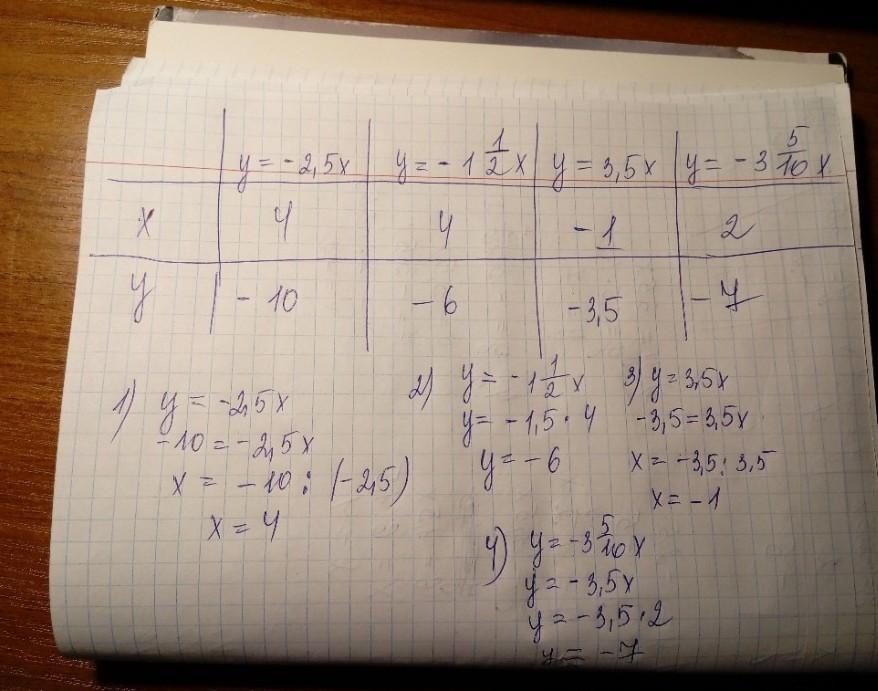 y = -2,5x y = -1 1/2 x y = 3,5x y = -3 5/10 x
x 4 4 -1 2
y -10 -6 -3,5 -7
1) y = -2,5x
-10 = -2,5x
x = -10 : (-2,5)
x = 4
2) y = -1 1/2 x
y = -1,5 · 4
y = -6
3) y = 3,5x
-3,5 = 3,5x
x = -3,5 : 3,5
x = -1
4) y = -3 5/10 x
y = -3,5x
y = -3,5 · 2
y = -7